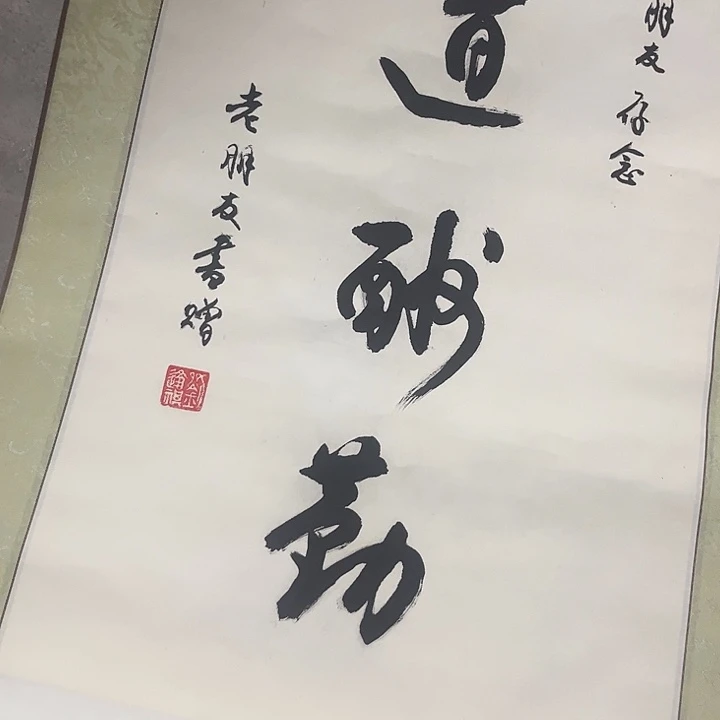 朋友 存念
道酬勤
老朋友書贈